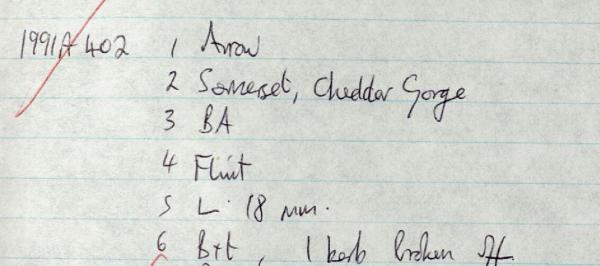 1991A 402 1 Arrow
2 Somerset, Cheddar Gorge
3 BA
4 Flint
5 L. 18 mm.
6 B+t, 1 barb broken off